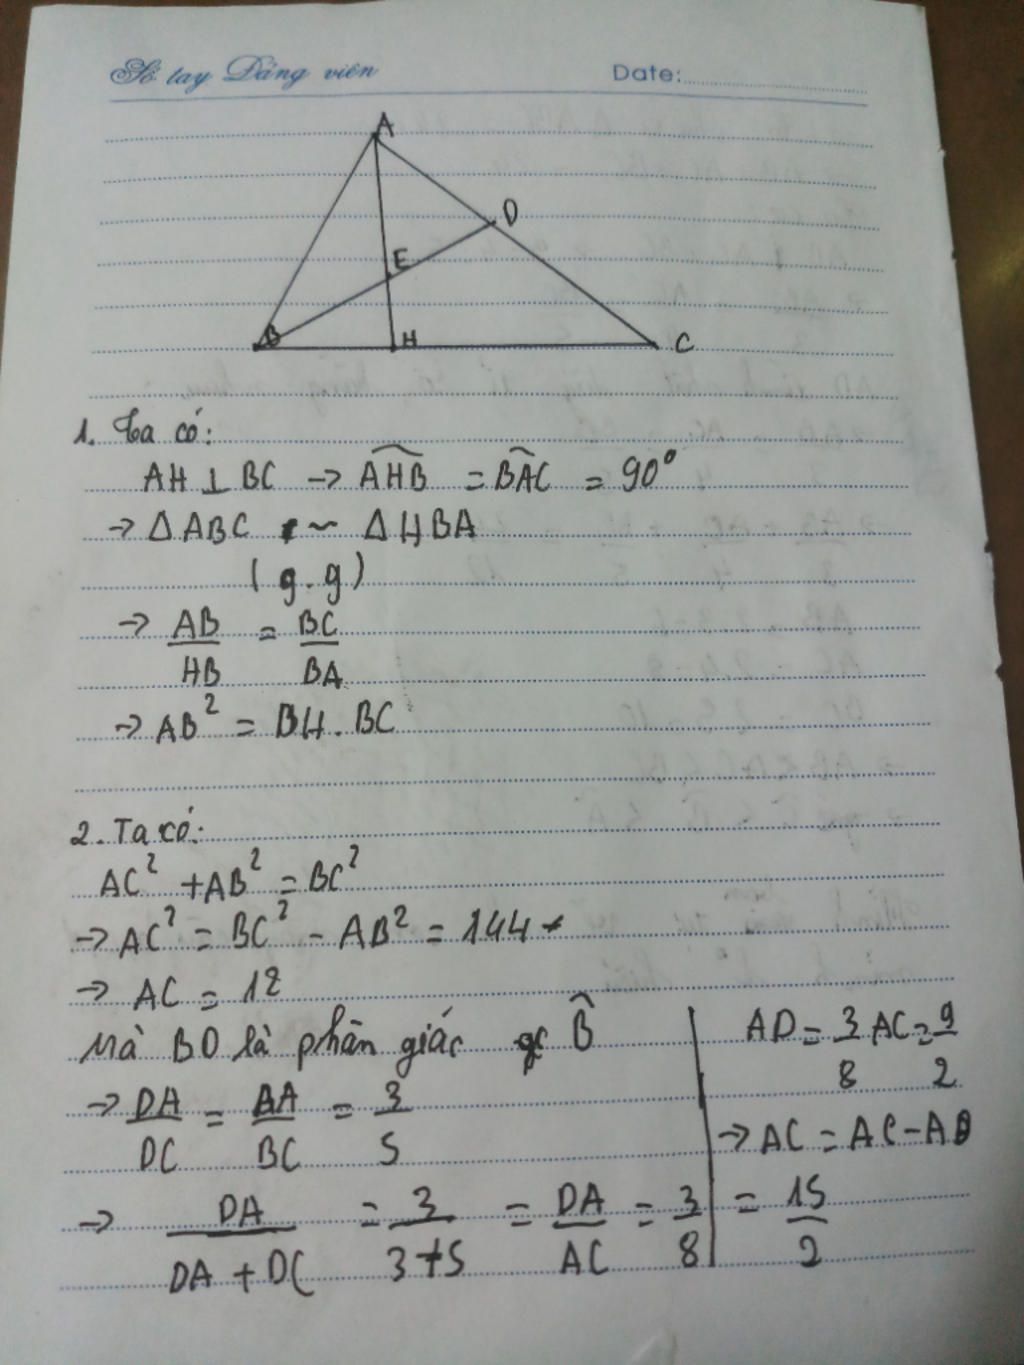 Sổ tay Đảng viên
Date:
A
D
E
B
H
C
1. Ta có:
AH ⊥ BC → AHB = BAC = 90°
→ Δ ABC ~ Δ HBA
(g.g)
→ AB/HB = BC/BA
→ AB² = BH.BC
2. Ta có:
AC² + AB² = BC²
→ AC² = BC² - AB² = 144
→ AC = 12
Mà BD là phân giác B
→ DA/DC = BA/BC = 3/5
→ DA/DA + DC = 3/3+5 = DA/AC = 3/8
AD = 3/8 AC = 9/2
→ AC = AC - AD
= 15/2